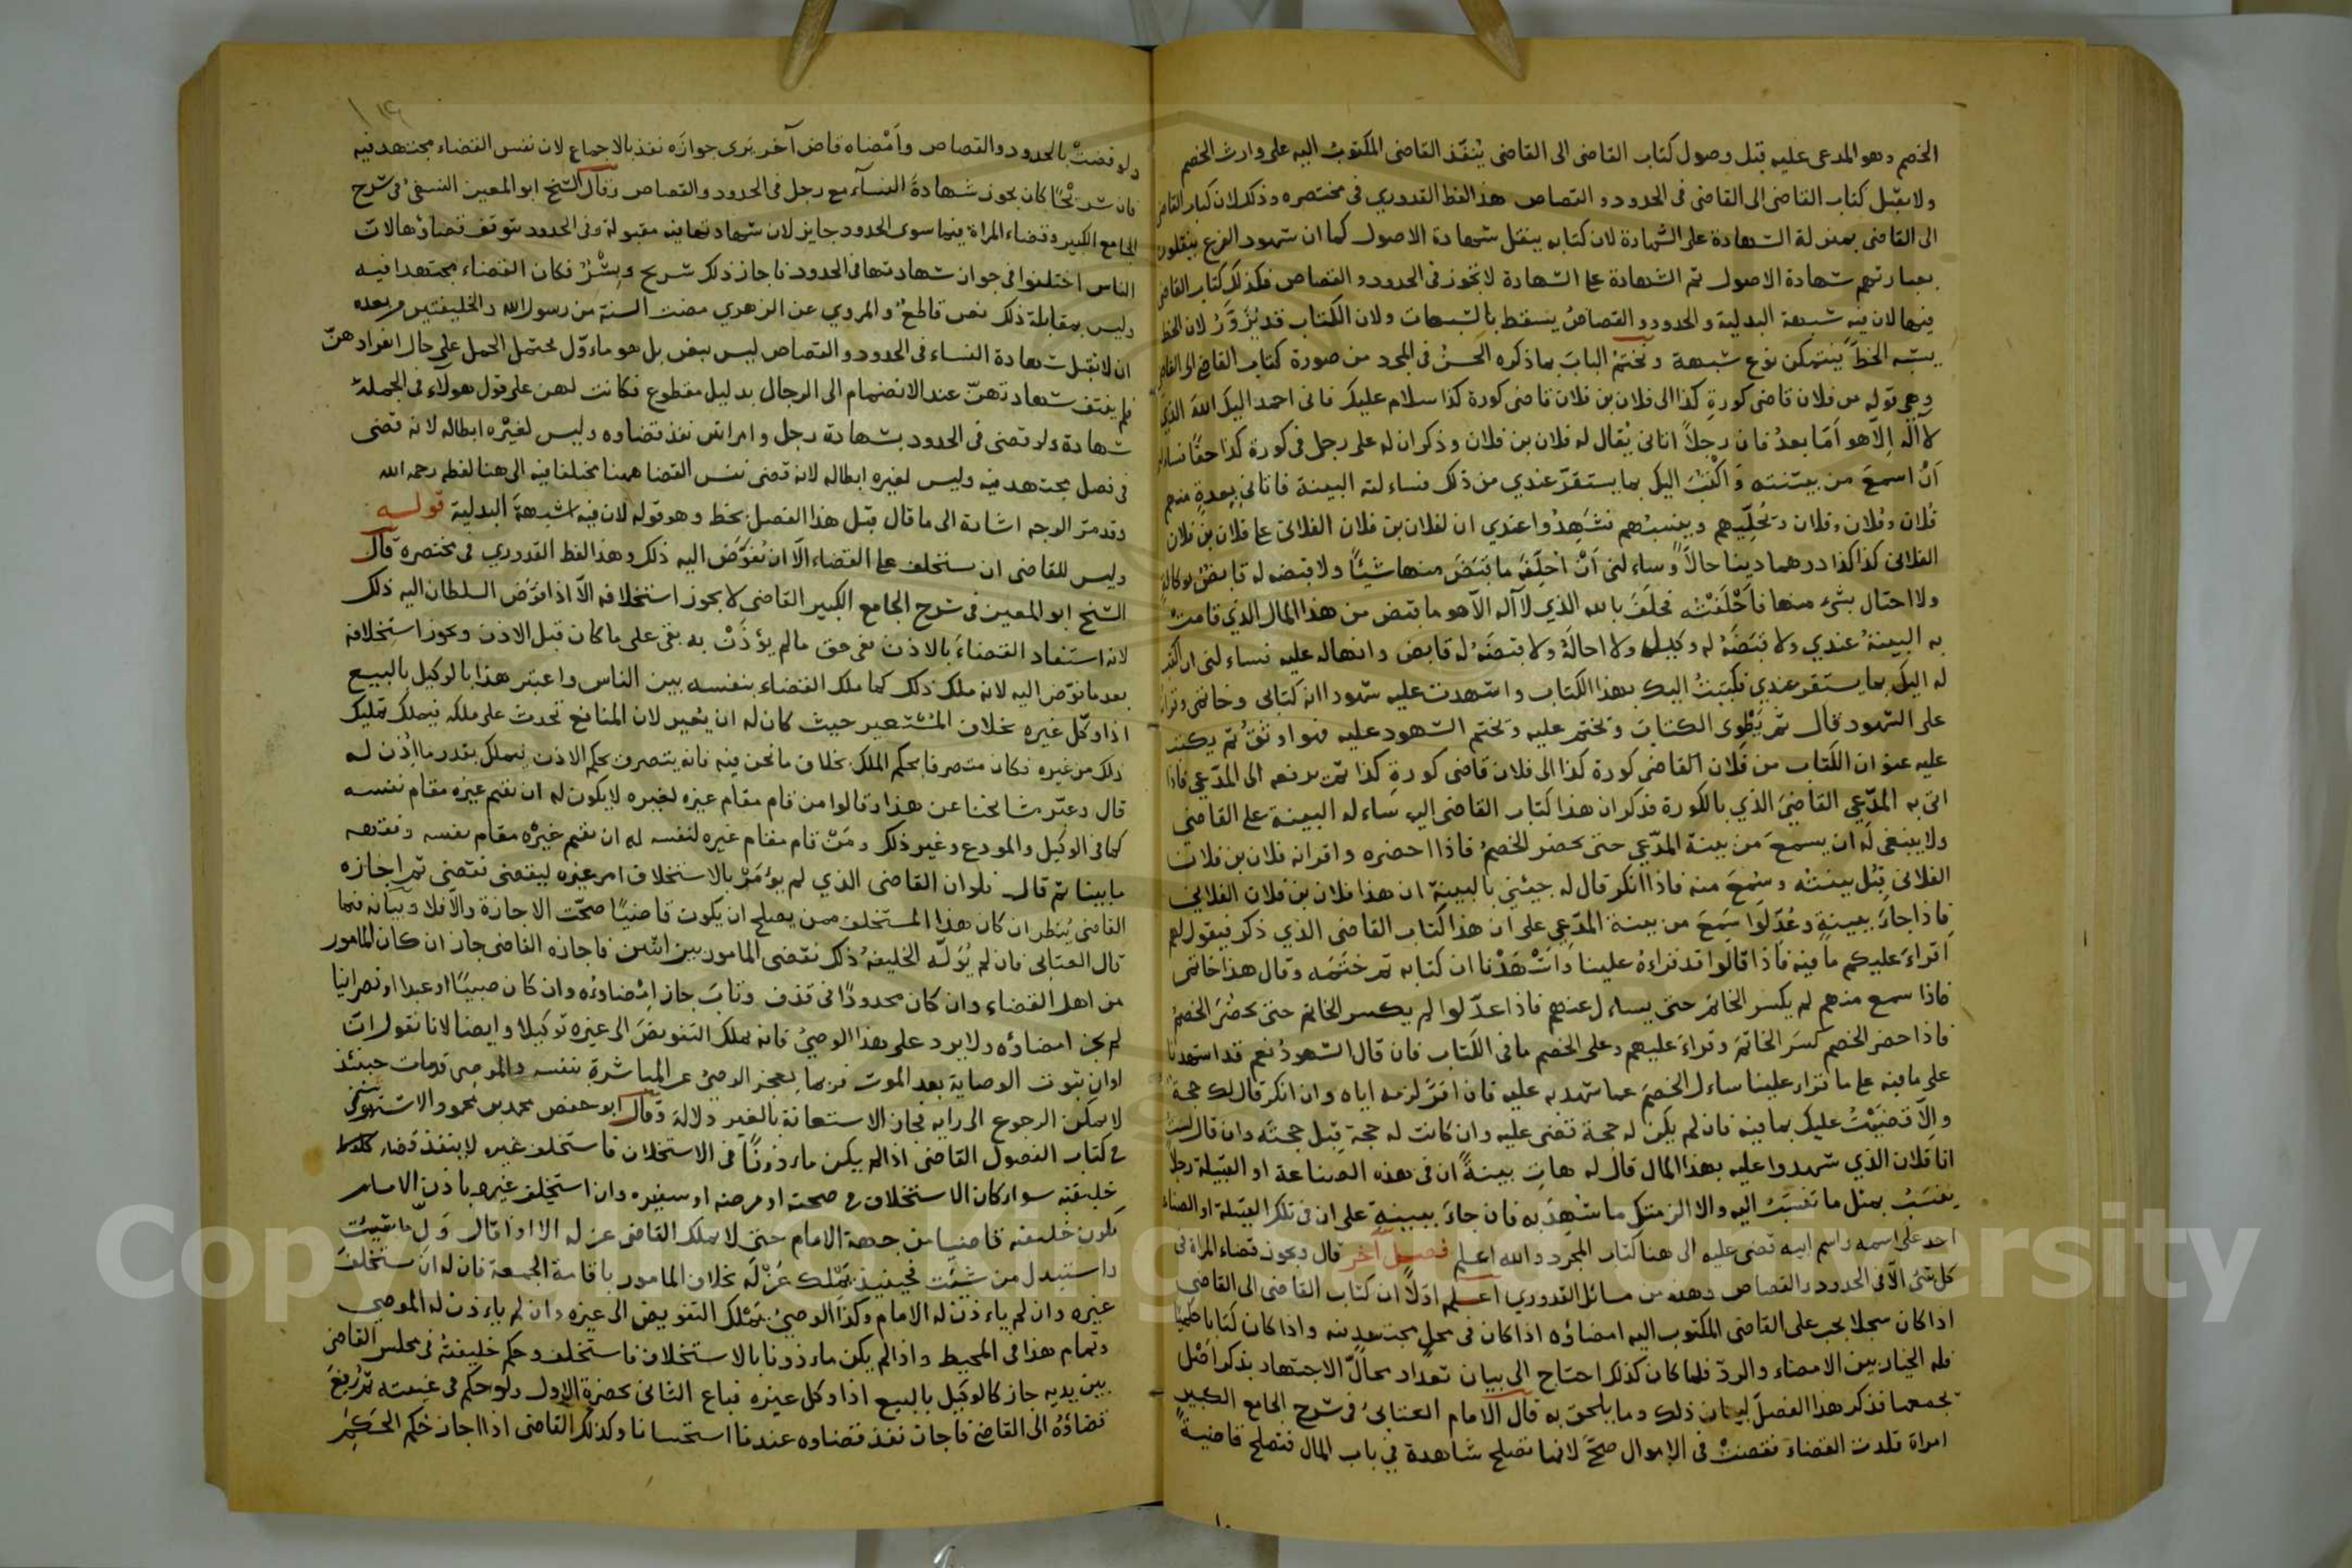 الخصم وهو المدعى عليه قبل وصول كتاب القاضى الى القاضى يُنفّذ القاضى المكتوب اليه على وارث الخصم
ولا يقبل كتاب القاضى الى القاضى فى الحدود و القصاص هذا لفظ القدوري فى مختصره وذلك لان كتاب القاضى
الى القاضى بمنزلة الشهادة على الشهادة لان كتابه ينقل شهادة الاصول كما ان شهود الفرع ينقلون
بعبارتهم شهادة الاصول ثم الشهادة على الشهادة لا تجوز فى الحدود و القصاص فكذلك كتاب القاضى
فيها لان فيه شبهة البدلية و الحدود و القصاصُ يسقط بالشبهات ولان الكتاب قد يُزوَّرُ لان الخط
يشبه الخطّ فيتمكن نوع شبهة ونختمُ البابَ بما ذكره الحسنُ فى المجرد من صورة كتاب القاضي الى القاضى
وهى قوله من فلان قاضى كورةِ كذا الى فلان بن فلان قاضى كورة كذا سلام عليك فانى احمد اليك الله الذي
لا اله اِلّا هو اَمّا بعدُ فان رجلاً اتانى يُقال له فلان بن فلان وذكر ان له على رجل فى كورة كذا حقًا فسالنى
اَنْ اسمعَ من بيّنته وَ اَكْتُبَ اليك بما يستقرّ عندي من ذلك فساءلته البينة فاتانى بِعِدةٍ منهم
فلان وفلان وفلان ويُحلّيهم وينسبُهم فشَهِدُوا عندي ان لفلان بن فلان الفلانى على فلان بن فلان
الفلانى كذا كذا درهما دينا حالاً وساءلنى اَنْ اُحلِّفَه ما قبَضَ منها شيئًا ولا قبضه له قابضٌ بوكالةٍ
ولا احتال بشئ منها فاَحْلَفْتُه فحَلَفَ بالله الذي لا اله الّا هو ما قبض من هذا المال الذي قامتْ
به البينةُ عندي ولا قبَضَهُ له وكيلٌ ولا احالهُ ولا قبضَهُ له قابض وانها له عليه فساءلنى ان اكتب
له اليك بما يستقر عندي فكتبتُ اليك بهذا الكتاب واشهدت عليه شهودا انه كتابى وخاتمى وقراته
على الشهود قال ثم يَطْوِى الكتابَ ويختم عليه ويختم الشهود عليه فهو اوثقُ ثم يكتب
عليه عنوان الكتاب من فلان القاضى كورة كذا الى فلان قاضى كورةِ كذا ثم يدفعه الى المدّعي فاذا
اتى به المدّعي القاضيَ الذي بالكورة فذكر ان هذا كتاب القاضى اليه ساءله البينة على القاضى
ولا ينبغى لَه ان يسمعَ من بينة المدّعي حتى يحضر الخصمُ فاذا احضره واقر انه فلان بن فلان
الفلانى قبُل بينتُه وسُمعَ منه فاذا انكر قال له جيئنِي بالبينة ان هذا فلان بن فلان الفلانى
فاذا جاءَ ببينةٍ وعُدّلوا سَمِعَ من بينة المدّعِي على ان هذا كتاب القاضى الذي ذكر فيقول لهم
اقراءَ عليكم ما فيه فاذا قالوا قد قراءهُ علينا واَشْهَدْنا ان كتابه ثم ختَمَه وقال هذا خاتمى
فاذا سمع منهم لم يكسر الخاتم حتى يساءل عنهم فاذا عدّلوا لم يكسر الخاتم حتى يحضُرَ الخصمُ
فاذا حضر الخصم كسَرَ الخاتمَ وقراءَ عليهم وعلى الخصم ما فى الكتاب فان قال الشهودُ نعم قد اشهدنا
على ما فيه على ما قراه علينا ساءل الخصمَ عما شهد به عليه فان اقرَّ لزمه اياه وان انكر قال لك حجة
واِلّا قضَيْتُ عليك بما فيه فان لم يكن له حجة قضى عليه وان كانت له حجة قبل حجته وان قال لستُ
انا فلان الذي شهدوا عليه بهذا المال قال له هاتِ بينةً ان فى هذه الصناعة او القبيلة رجلا
يُنسَبُ بمثل ما تُنسَبُ اليه والا الزمتك ما شُهِدَ به فان جاءَ ببينةٍ على ان فى تلك القبيلة او الصناعة
احد على اسمه واسم ابيه قضى عليه الى هنا كتاب المجرّد والله اعلم فصل آخر قال ويجوز قضاء المراة فى
كل شئ الّا فى الحدود والقصاص وهذه من مسائل القدوري اعلم اوّلاً ان كتاب القاضى الى القاضى
اذا كان سجلا يجب على القاضى المكتوب اليه امضاؤه اذا كان فى محلٍ مجتهد فيه واذا كان كتابا حكميا
فله الخيار بين الامضاء والردّ فلما كان كذلك احتاج الى بيان تعداد محالّ الاجتهاد بذكر اصْل
يجمعها فذكر هذا الفصلَ لبيان ذلك وما يلحق به قال الامام العتابىُ فى شرح الجامع الكبير
امراة قلدت القضاء فقضتْ فى الاموال صحَّ لانها تصلح شاهدة فى باب المال فتصلح قاضيةً
ولو قضتْ بالحدود والقصاص واَمْضاه قاض آخر يَرى جوازَه نفذ بالاجماع لان نفس القضاء مجتهد فيه
فان شريْحًا كان يجوز شهادةَ النسآء مع رجل فى الحدود والقصاص وقال الشيخ ابو المعين النسفىُ فى شرح
الجامع الكبير وقضاء المراة فيما سوى الحدود جايز لان شهادتها فيه مقبولة وفى الحدود يتوقف قضاؤها لانّ
الناس اختلفوا فى جواز شهادتها فى الحدود فاجاز ذلك شريح وبِشْرٌ فكان القضاء مجتهدا فيه
وليس بمقابلة ذلك نص قاطعٌ والمروي عن الزهري مضت السنة من رسول الله والخليفتين من بعده
ان لا تقبل شهادة النساء فى الحدود و القصاص ليس بنص بل هو ماءوّل يحتمل الحمل على حال انفرادهنّ
شهادتهنّ عند الانضمام الى الرجال بدليل مقطوع فكانت لهن على قول هولاء فى الجملة
شهادة ولو قضى فى الحدود بشهادة رجل وامراتين نفذ قضاوه وليس لغيْره ابطاله لانه قضى
فى فصل مجتهد فيه وليس لغيره ابطاله لانه قضى نفس القضا ههنا مختلفا فيه الى هنا لفظه رحمه الله
وقد مرّ الوجه اشارة الى ما قال قبل هذا الفصل بخط وهو قوله لان فيه شبهةَ البدلية قوله
وليس للقاضى ان يستخلف على القضاء الّا ان يُفوَّض اليه ذلك وهذا لفظ القدوري فى مختصره قال
الشيخ ابو المعين فى شرح الجامع الكبير القاضى لا يجوز استخلافه الّا اذا فوّضَ السلطان اليه ذلك
لانه استفاد القضاءَ بالاذن ففى حق مالم يؤذَنْ به بقى على ما كان قبل الاذن ويجوز استخلافه
بعد ما فوّض اليه لانه ملك ذلك كما ملك القضاء بنفسه بين الناس واعتبر هذا بالوكيل بالبيع
اذا وكّل غيره بخلاف المُسْتعير حيث كان له ان يعير لان المنافع تحدث على ملكه فيملك تمليك
ذلك من غيره فكان متصرفا بحكم الملك بخلاف ما نحن فيه فانه يتصرف بحكم الاذن فيملك بقدر ما اُذن له
قال وعبّر مشايخنا عن هذا وقالوا من قام مقام غيره لغيره لا يكون له ان يقيم غيره مقام نفسه
كما فى الوكيل والمودع وغير ذلك ومَنْ قام مقام غيره لنفسه له ان يقيم غيْره مقام نفسه وفقهه
ما بينا ثم قال فلو ان القاضى الذي لم يُؤمَرْ بالاستخلاف امر غيره ليقضى فقضى ثم اجازه
القاضى يُنظر ان كان هذا المستخلف ممن يصلح ان يكون قاضيًا صحّت الاجازة والّا فلا وبيانه فيما
قال العتابى فان لم يُوَلّه الخليفهُ ذلك فقضى المامور بين اثنين فاجازه القاضى جاز ان كان المامور
من اهل القضاء وان كان محدودًا فى قذف وتابَ جاز اِمْضاؤه وان كان صبيًا او عبدا او نصرانيا
لم يجز امضاؤه ولا يرد على هذا الوصىُ فانه يملك التفويضَ الى غيره توكيلا وايضا لانا نقول انّ
اوان ثبوت الوصاية بعد الموت فربما يعجز الوصىُ عن المباشرةِ بنفسه والموصى قد مات حينئذ
لا يمكن الرجوع الى رايه فجاز الاستعانة بالغير دلالة وقال ابو حفص محمد بن محمود الاستروشنى
فى كتاب الفصول القاضى اذا لم يكن ماءذونًا فى الاستخلاف فاستخلف غيره لا ينفذ قضاء
خليفته سواء كان الاستخلاف فى صحته او مرضه او سفره وان استخلف غيره باذن الامام
يكون خليفته قاضيا من جهة الامام حتى لا يملك القاضى عزله الا اذا قال وَلِّ ما شيئت
واستبدل من شئت فحينيذ يَمْلك عَزْلَه بخلاف المامور باقامة الجمعة فان له ان يستخلف
غيره وان لم ياءذن له الامام وكذا الوصىُ يَمْلك التفويض الى غيره وان لم ياءذن له الموصى
وتمام هذا فى المحيط واذا لم يكن ماءذونا بالاستخلاف فاستخلف وحكم خليفتهُ فى مجلس القاضى
بين يديه جاز كالوكيل بالبيع اذا وكل غيره فباع الثانى بحضرة الاول ولو حكم فى غيبته ثم رُفِعَ
قضاؤهُ الى القاضى فاجاز نفذ قضاوه عندنا استحسانا وكذلك القاضى اذا اجاز حُكم الحَكَمِ
Copyright © King Saud University